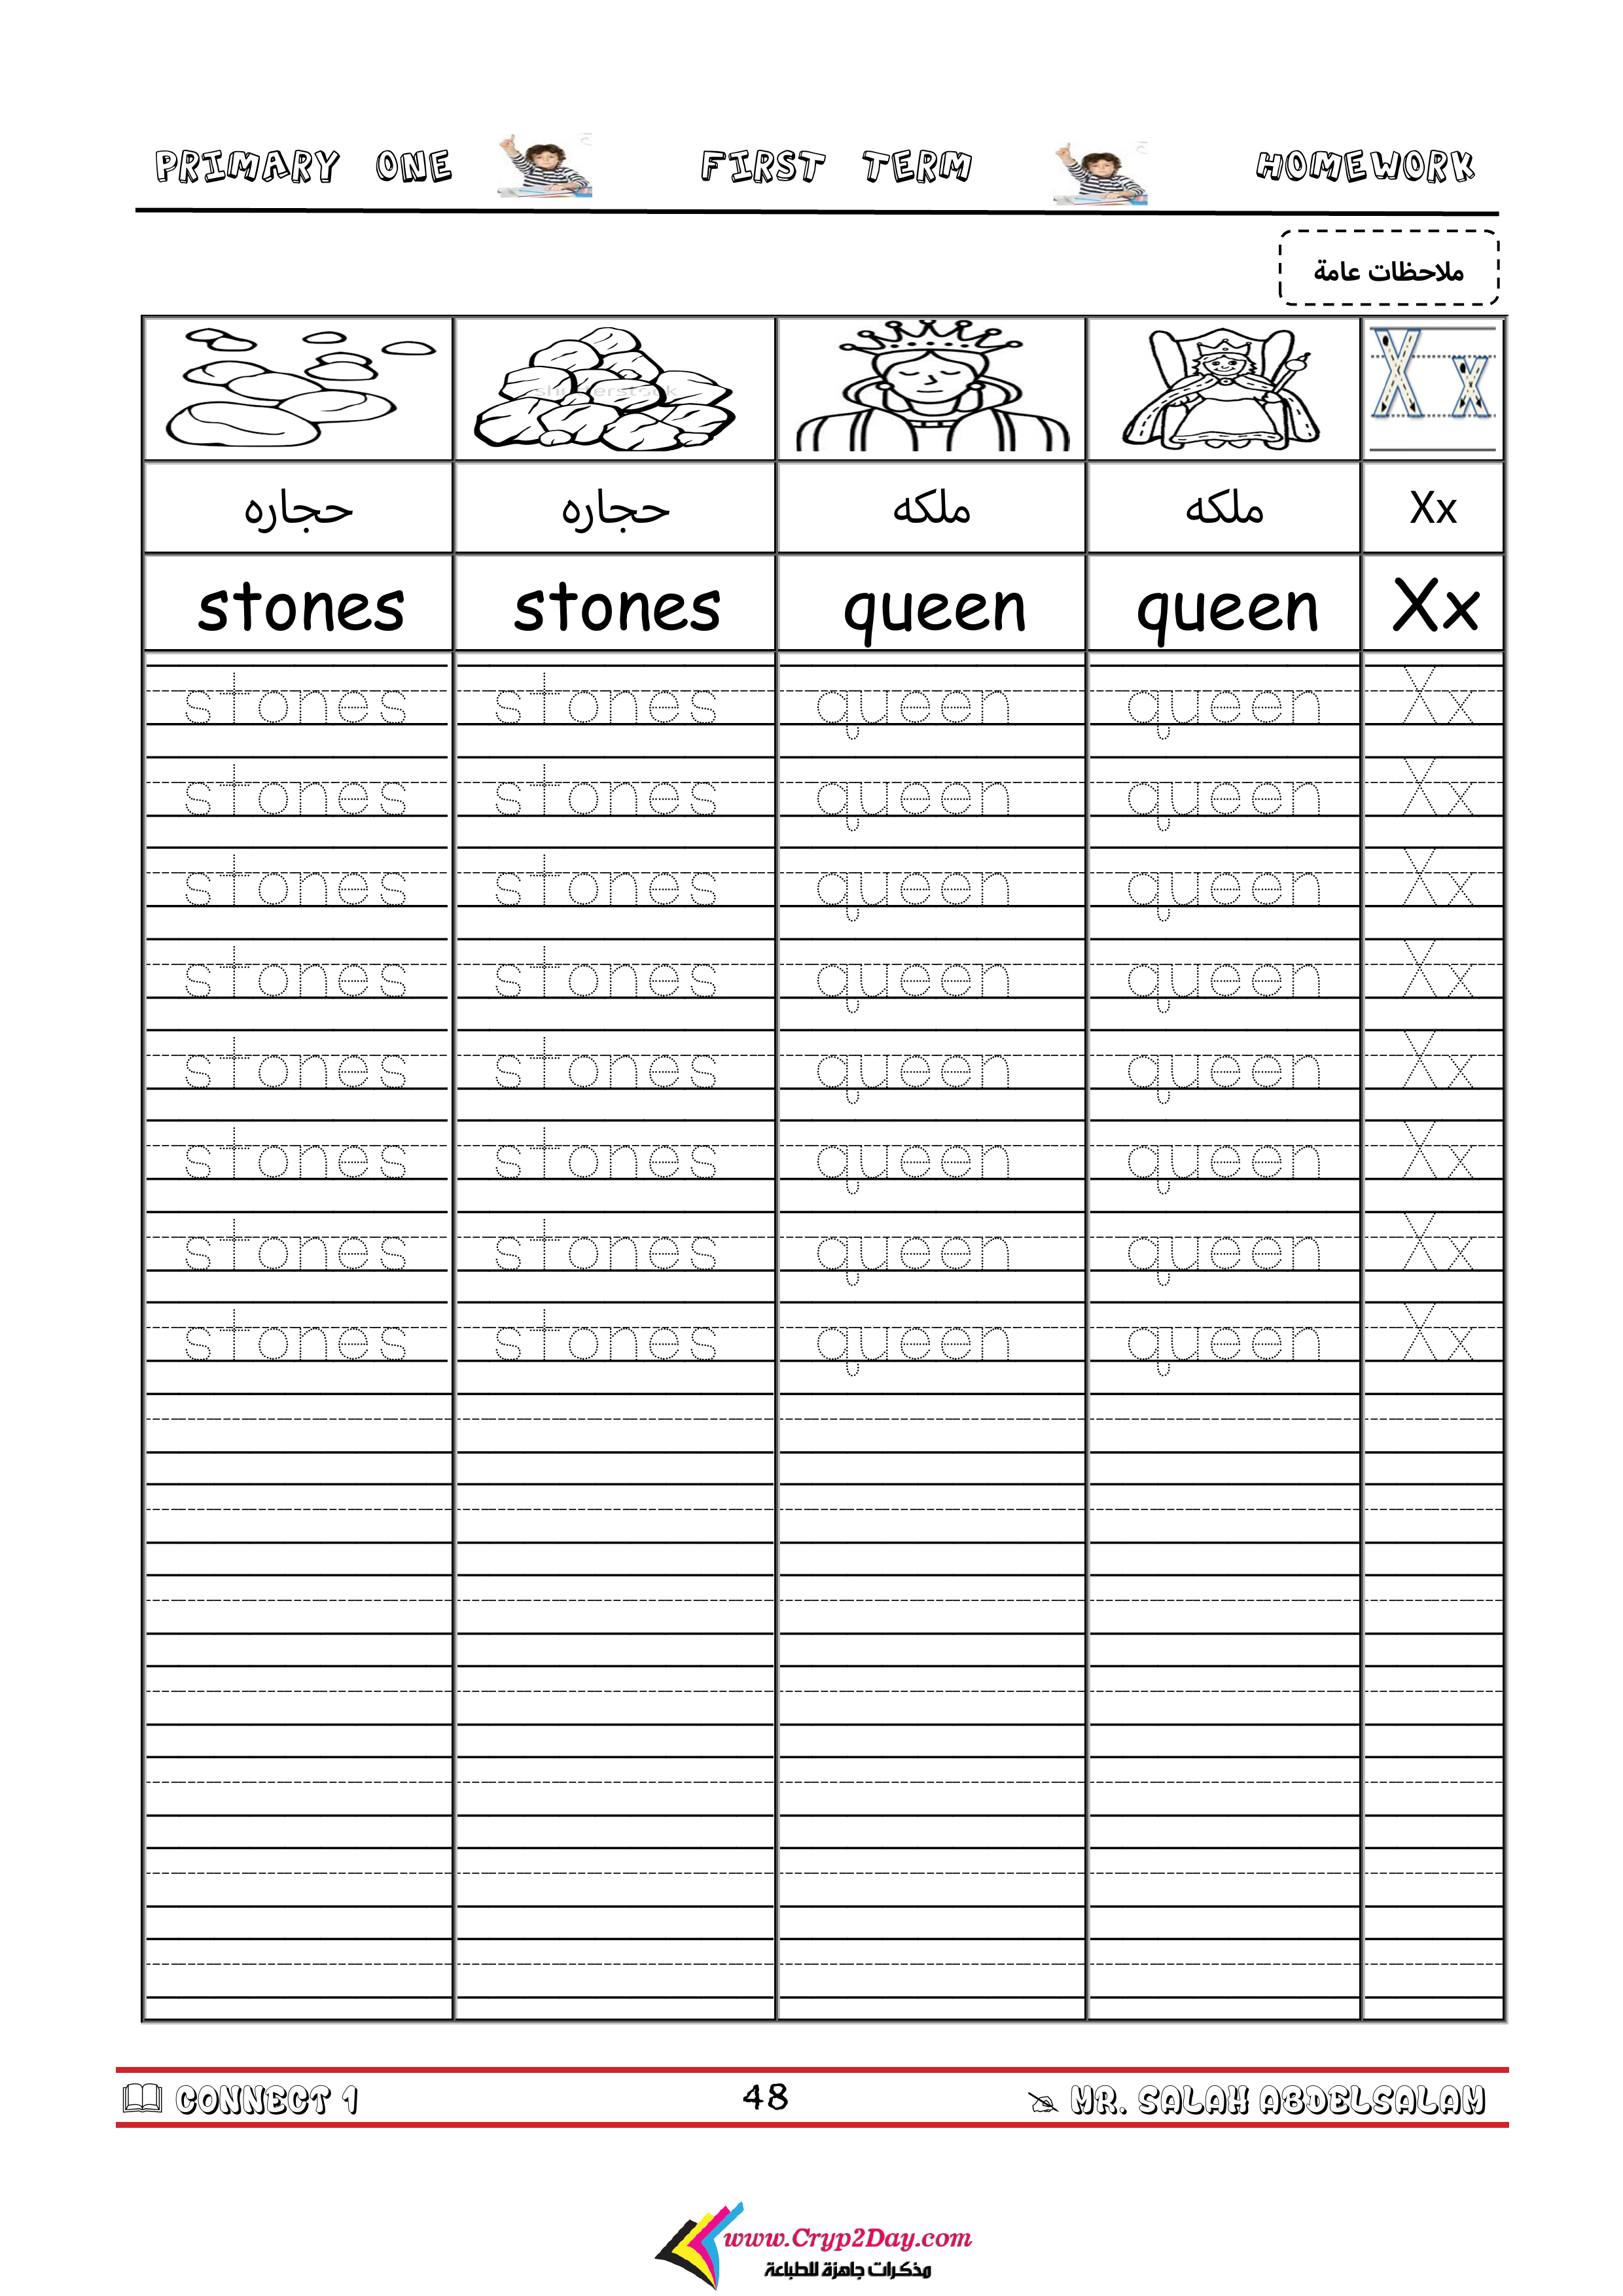 PRIMARY ONE FIRST TERM HOMEWORK
ملاحظات عامة
shutterstock
X x
حجاره حجاره ملكه ملكه Xx
stones stones queen queen Xx
stones stones queen queen Xx
stones stones queen queen Xx
stones stones queen queen Xx
stones stones queen queen Xx
stones stones queen queen Xx
stones stones queen queen Xx
stones stones queen queen Xx
stones stones queen queen Xx
CONNECT 1 48 MR. SALAH ABDELSALAM
www.Cryp2Day.com
مذكرات جاهزة للطباعة